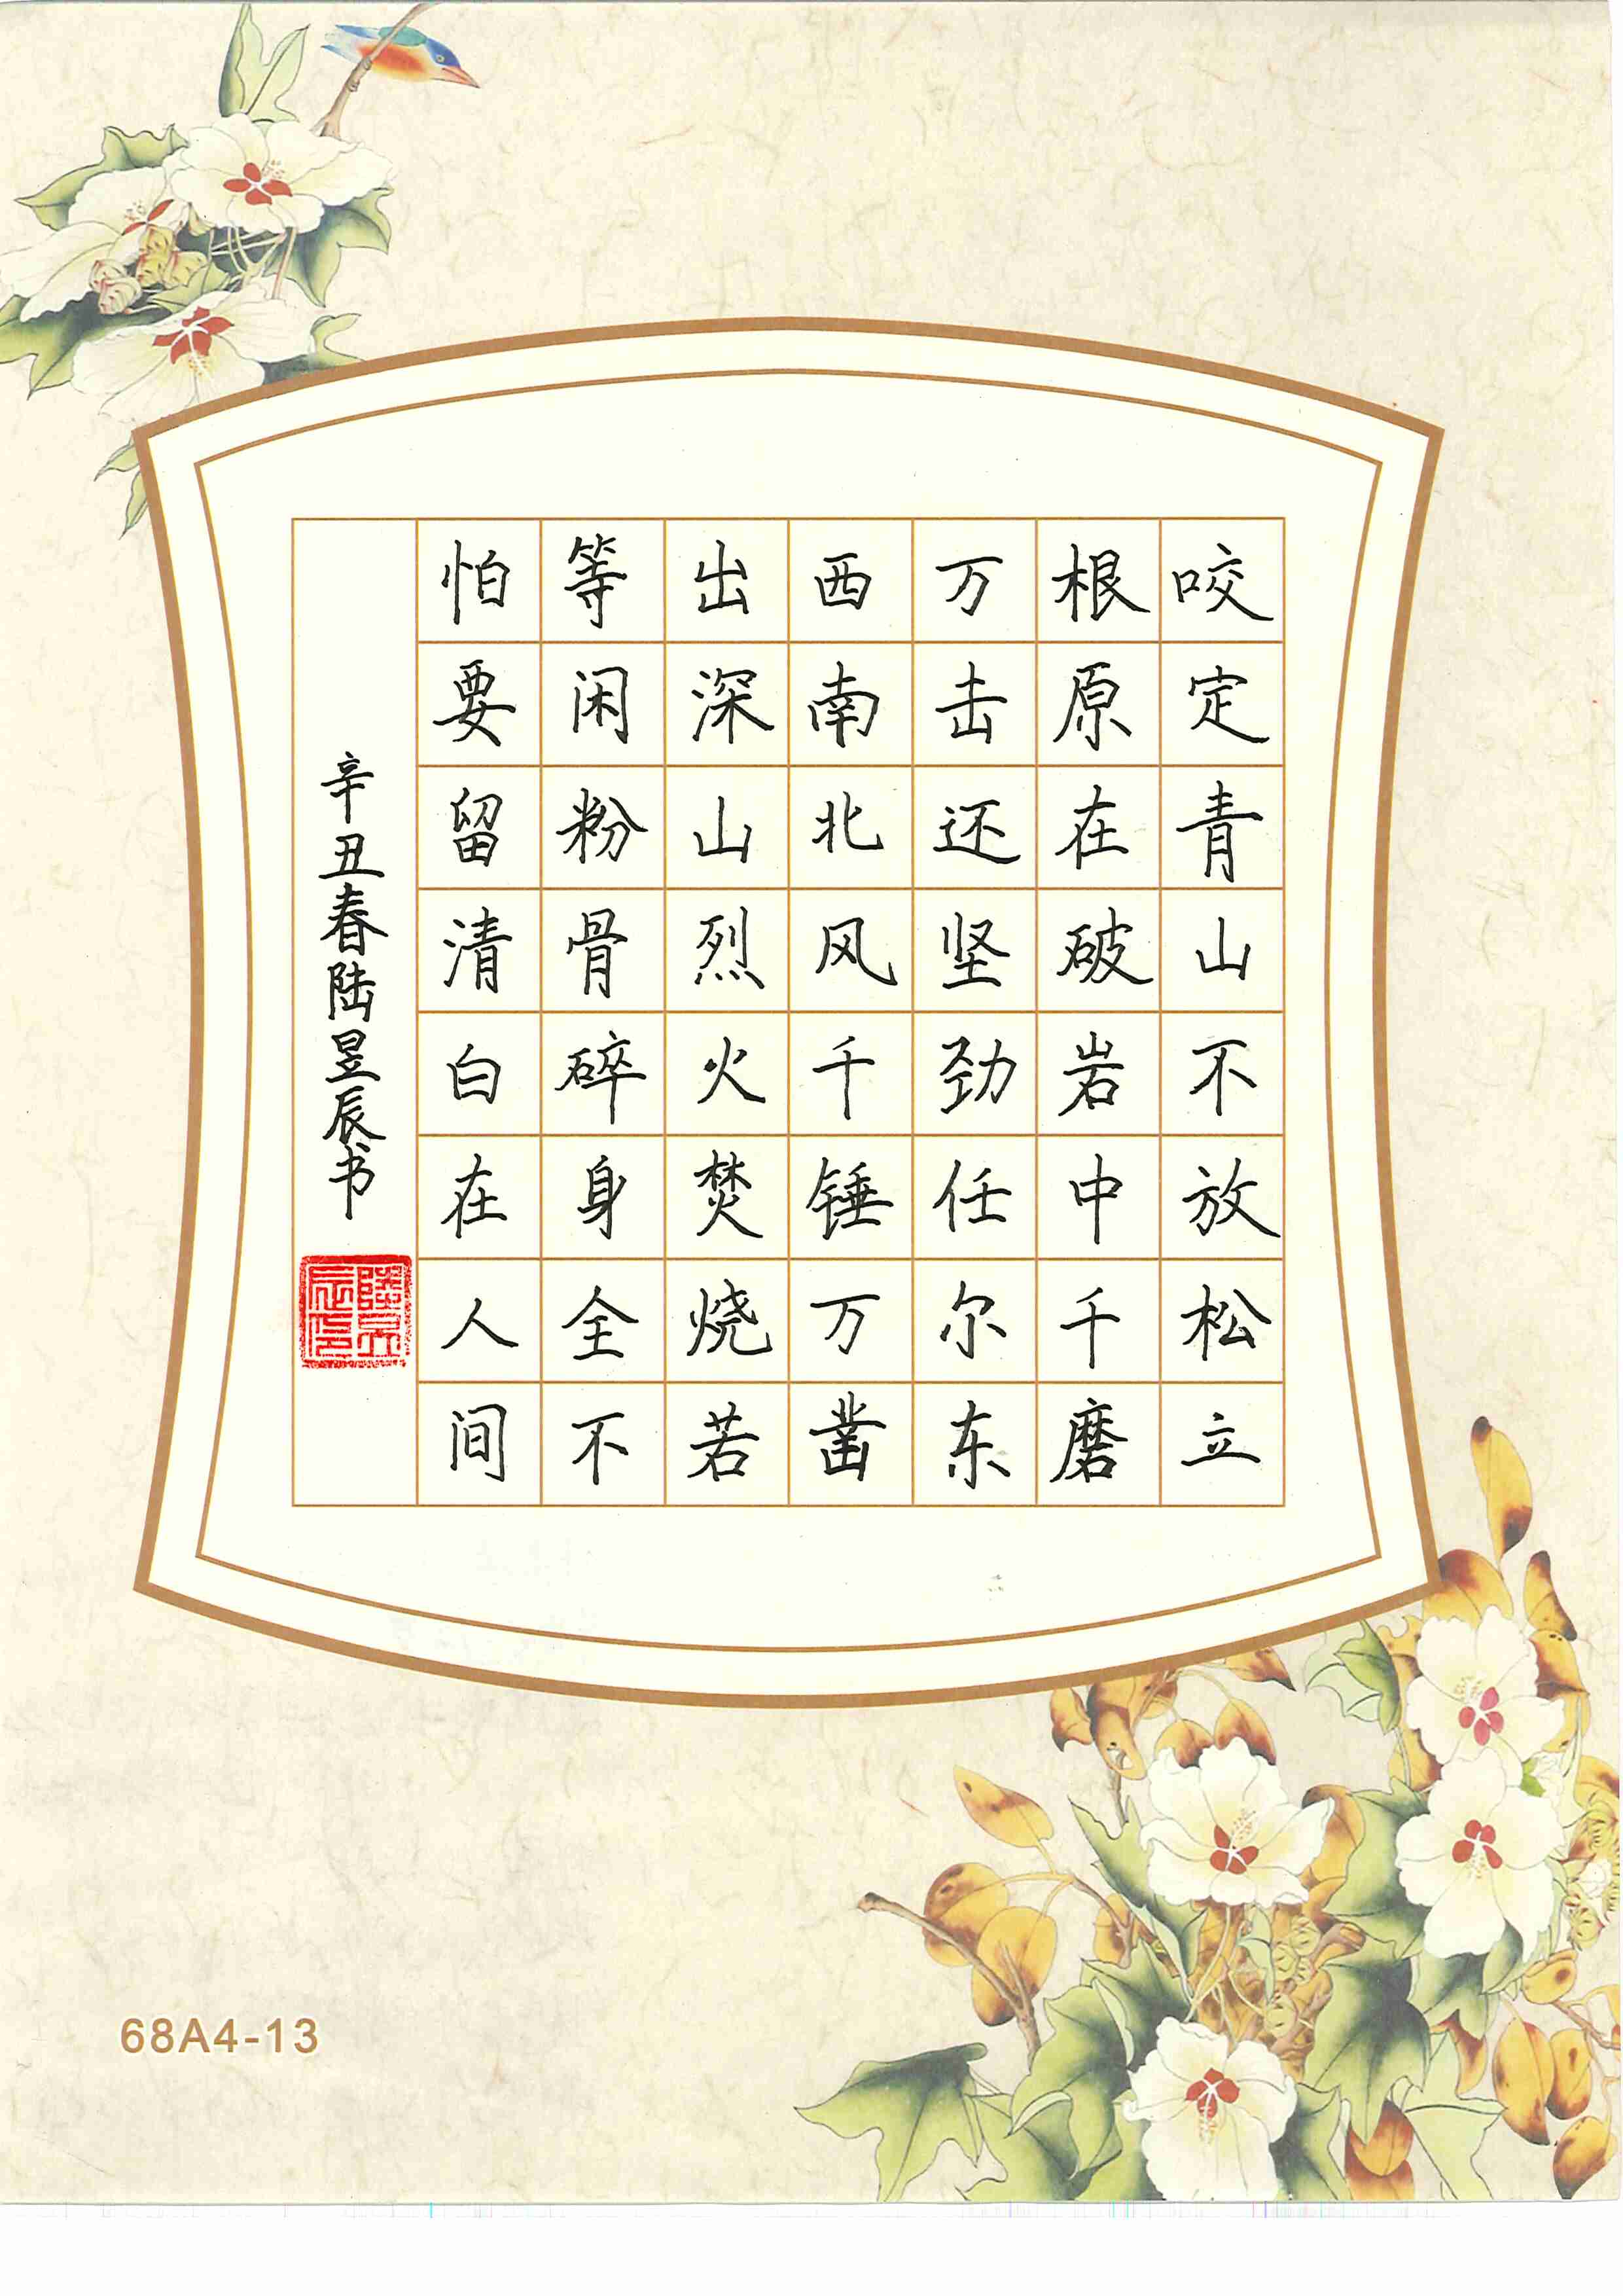 咬定青山不放松立
根原在破岩中千磨
万击还坚劲任尔东
西南北风千锤万凿
出深山烈火焚烧若
等闲粉骨碎身全不
怕要留清白在人间
辛丑春陆昱辰书
68A4-13